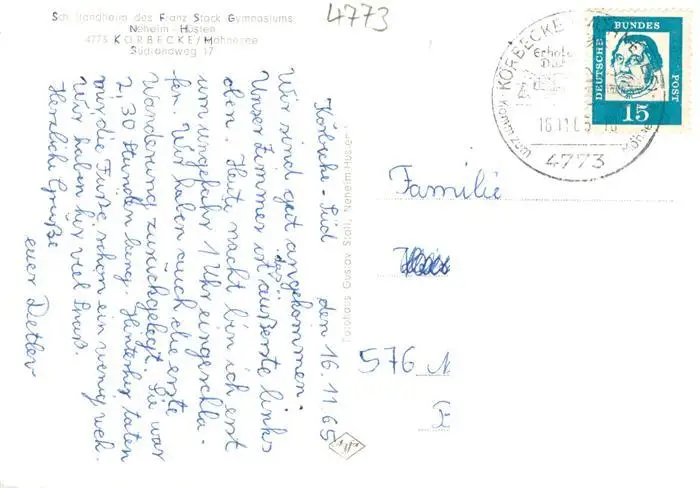 Schullandheim des Franz Stock Gymnasiums
Neheim - Hüsten
4773 KÖRBECKE/Möhnesee
Südrandweg 17
4773
Körbecke-Süd den 16.11.65
Wir sind gut angekommen.
Unser Zimmer ist das äußerste links
oben. Heute nacht bin ich erst
um ungefähr 1 Uhr eingeschla-
fen. Wir haben auch die erste
Wanderung zurückgelegt. Sie war
2,30 Stunden lang. Hinterher taten
mir die Füße schon ein wenig weh.
Wir haben hir viel Spaß.
Herzliche Grüße
euer Detlev
Fotohaus Gustav Stoll, Neheim-Hüsten
KÖRBECKE
Komm zum
Möhne
16.11.65-16
4773
DEUTSCHE
BUNDES
POST
15
Familie
576 N